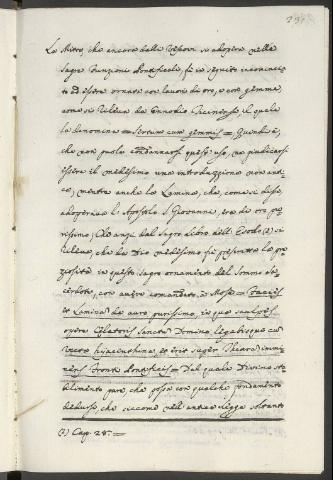 La Mitra, che ancora dalli Vescovi si adopera nelle
Sagre Funzioni Pontificali, fù in seguito incomincia-
ta ad essere ornata con lavori di oro, e con gemme,
come si rileva da Ennodio Ticinense, il quale
la denomina = Sertum cum gemmis =, Quindi è,
che non puole condannarsi quest' uso, nè giudicarsi
essere il medesimo una introduzzione non anti-
ca; mentre anche la Lamina, che, come si disse,
adoperava l' Apostolo S. Giovanni, era di oro pu-
rissimo; Ed anzi dal Sagro Libro dell' Esodo (1) si
rileva, che da Dio medesimo fù prescritta la pre-
ziosità in questo sagro ornamento del Sommo Sa-
cerdote, con avere comandato à Mosè = Facies
et Laminam de auro purissimo, in qua sculpes
opere Cælatoris Sanctum Domino, ligabisque eam
vitta hyacinthina, et erit super Thiaram immi-
nens fronti Pontificis = Dal quale Divino sta-
bilimento pare, che possa con qualche fondamento
dedursi, che siccome nell' antica legge soltanto
(1) Cap. 28. =